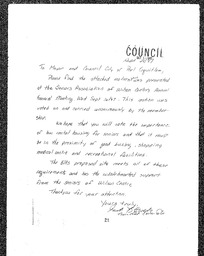 COUNCIL
To Mayor and Council City of Port Coquitlam,
Please find the attached resolutions presented
at the Seniors Association of Wilson Centre Annual
General Meeting this Sept. This motion was
voted on and carried unanimously by the member-
ship.
We hope that you will note the importance
of low rental housing for seniors and that it must
be in the proximity of good busing, shopping
medical and recreational facilities.
The proposed site meets all of these
requirements and has the wholehearted support
from the seniors of Wilson Centre.
Thank you for your attention.
Yours truly,
21